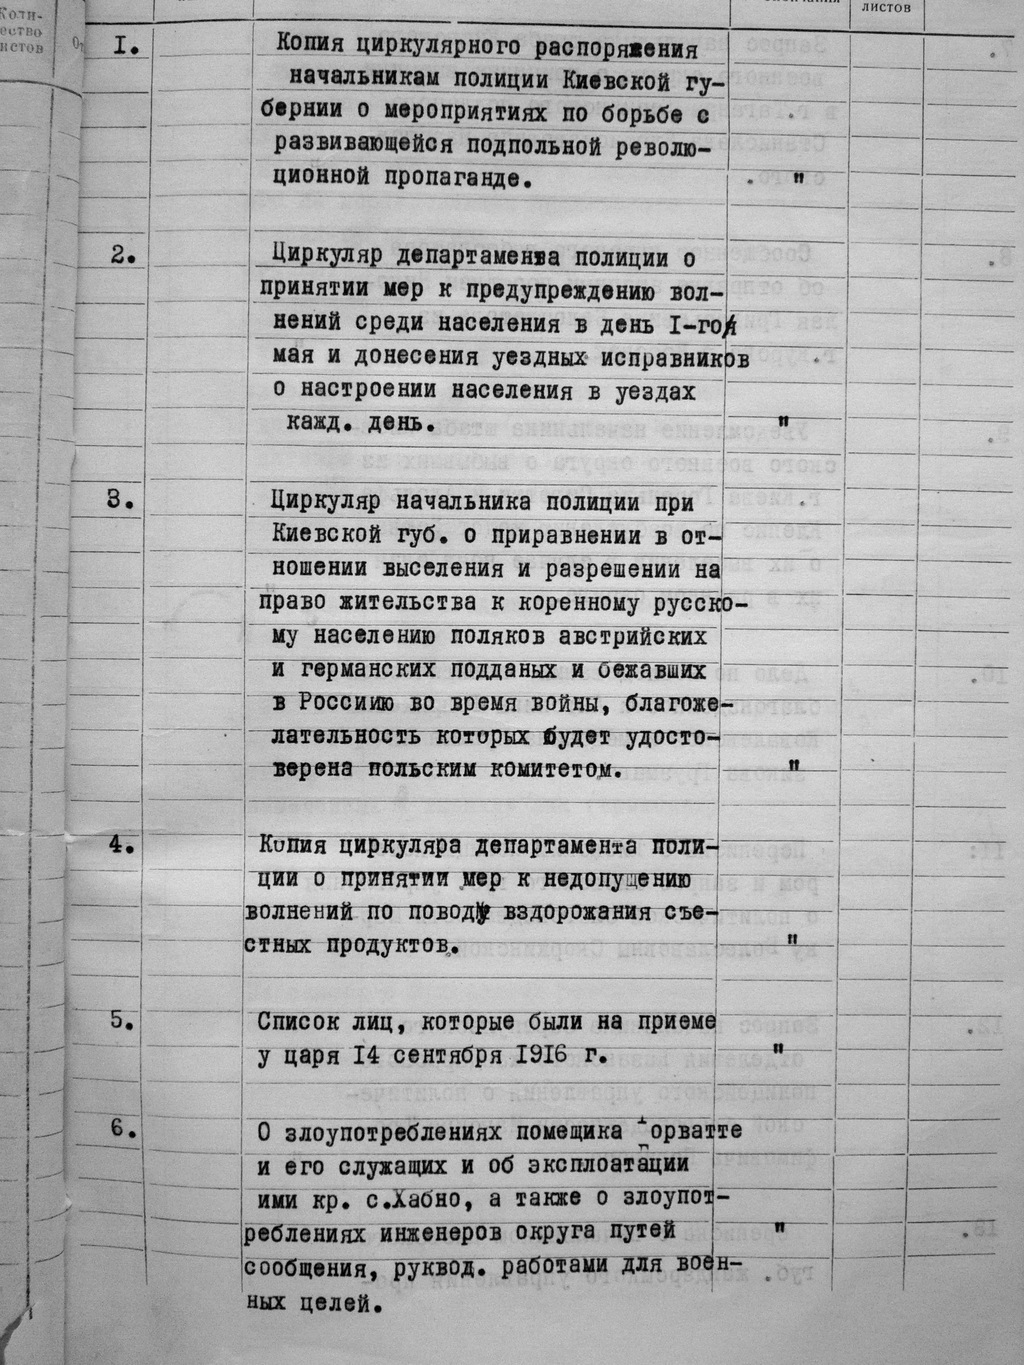 Коли-
ество
истов
листов
1.
Копия циркулярного распоряжения
начальникам полиции Киевской гу-
бернии о мероприятиях по борьбе с
развивающейся подпольной револю-
ционной пропаганде. "
2.
Циркуляр департамента полиции о
принятии мер к предупреждению вол-
нений среди населения в день I-го
мая и донесения уездных исправников
о настроении населения в уездах
кажд. день. "
3.
Циркуляр начальника полиции при
Киевской губ. о приравнении в от-
ношении выселения и разрешении на
право жительства к коренному русско-
му населению поляков австрийских
и германских подданых и бежавших
в Россиию во время войны, благоже-
лательность которых будет удосто-
верена польским комитетом. "
4.
Копия циркуляра департамента поли-
ции о принятии мер к недопущению
волнений по поводу вздорожания съе-
стных продуктов. "
5.
Список лиц, которые были на приеме
у царя I4 сентября I9I6 г. "
6.
О злоупотреблениях помещика
и его служащих и об эксплоатации
ими кр. с.Хабно, а также о злоупот-
реблениях инженеров округа путей "
сообщения, руквод. работами для воен-
ных целей.